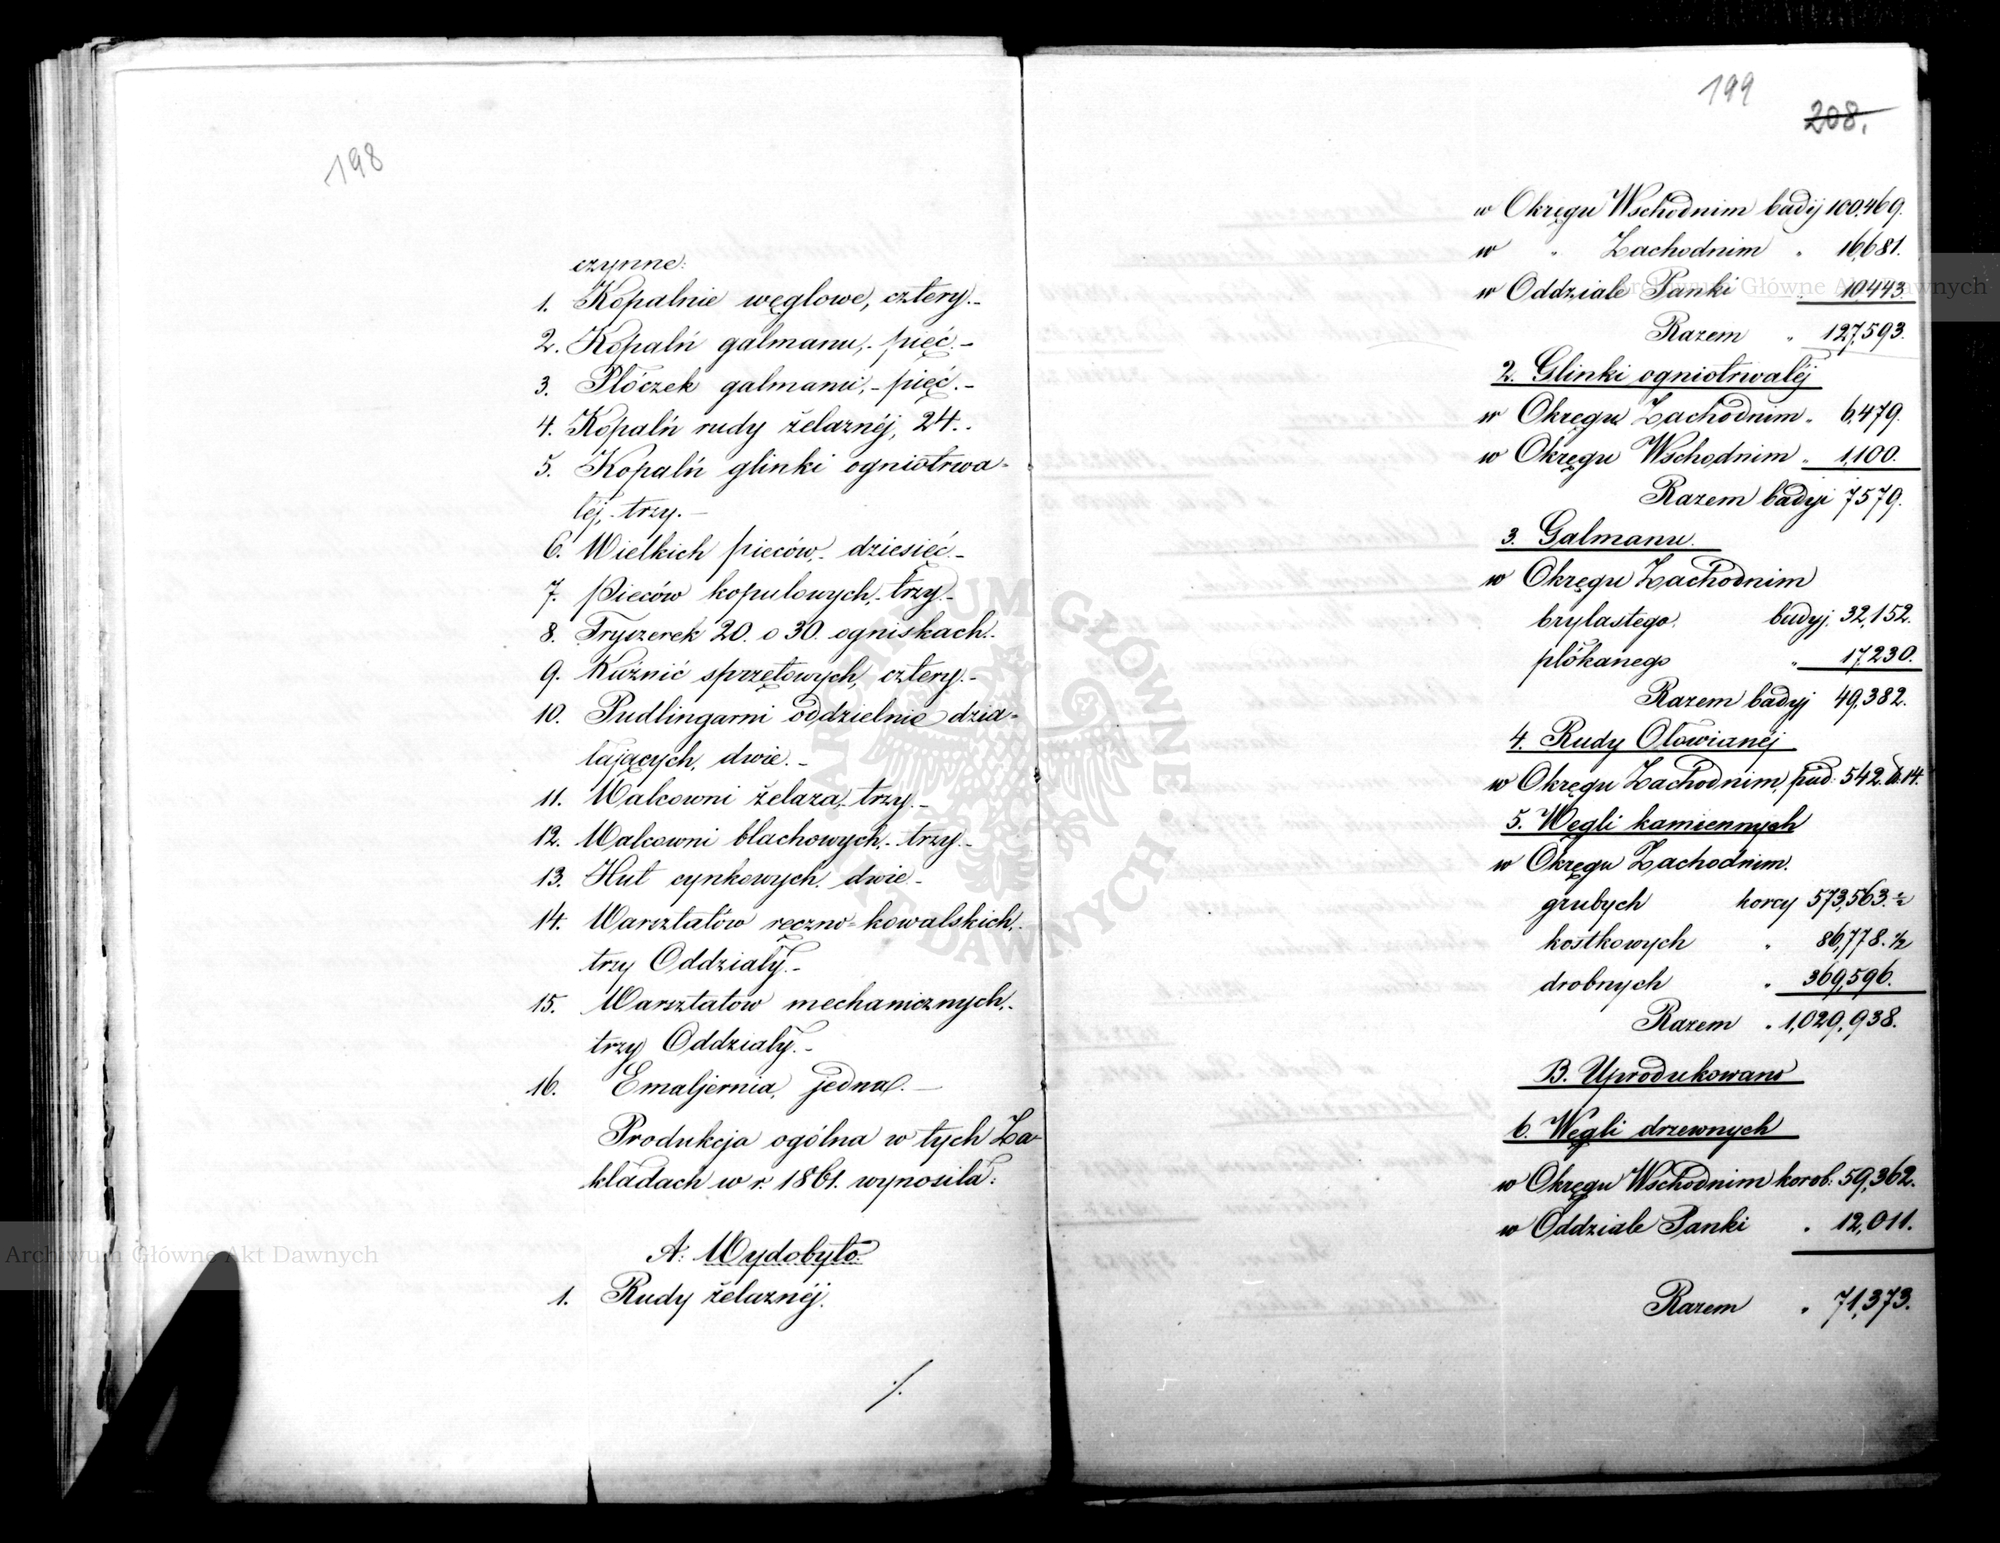 198
czynne:
1. Kopalnie węglowe, cztery.-
2. Kopalń galmanu,- pięć.-
3. Płóczek galmanu,- pięć.-
4. Kopalń rudy żelaznéj, 24.-
5. Kopalń glinki ogniotrwa-
łéj,- trzy.-
6. Wielkich pieców,- dziesięć.-
7. Pieców kopulowych,- trzy.-
8. Fryszerek 20. o 30. ogniskach.-
9. Kuźnić sprzętowych, cztery.-
10. Pudlingarni oddzielnie dzia-
łających, dwie.-
11. Walcowni żelaza,- trzy.-
12. Walcowni blachowych,- trzy.-
13. Hut cynkowych, dwie.-
14. Warsztatów ręczno-kowalskich,-
trzy Oddziały.-
15. Warsztatów mechanicznych,-
trzy Oddziały.-
16. Emaljernia, jedna.-
Produkcja ogólna w tych Za-
kładach w r. 1861. wynosiła:
A: Wydobyto:
1. Rudy żelaznéj.
./.
199
208.
w Okręgu Wschodnim badij 100,469.
w " Zachodnim " 16,681.
w Oddziale Panki " 10,443.
Razem " 127,593.
2. Glinki ogniotrwałéj
w Okręgu Zachodnim " 6,479.
w Okręgu Wschodnim " 1,100.
Razem badyi 7579.
3. Galmanu.
w Okręgu Zachodnim
bryłastego. badyj. 32,152.
płókanego " 17,230.
Razem badyj 49,382.
4. Rudy Ołowianéj
w Okręgu Zachodnim, pud. 542. ℔. 14.
5. Węgli kamiennych
w Okręgu Zachodnim.
grubych korcy 573,563. ½
kostkowych " 86,778. ½
drobnych " 369,596.
Razem " 1,029,938.
B. Uprodukowano
6. Węgli drzewnych
w Okręgu Wschodnim korob: 59,362.
w Oddziale Panki " 12,011.
Razem " 71,373.
Archiwum Główne Akt Dawnych
Archiwum Główne Akt Dawnych
ARCHIWUM GŁÓWNE AKT DAWNYCH